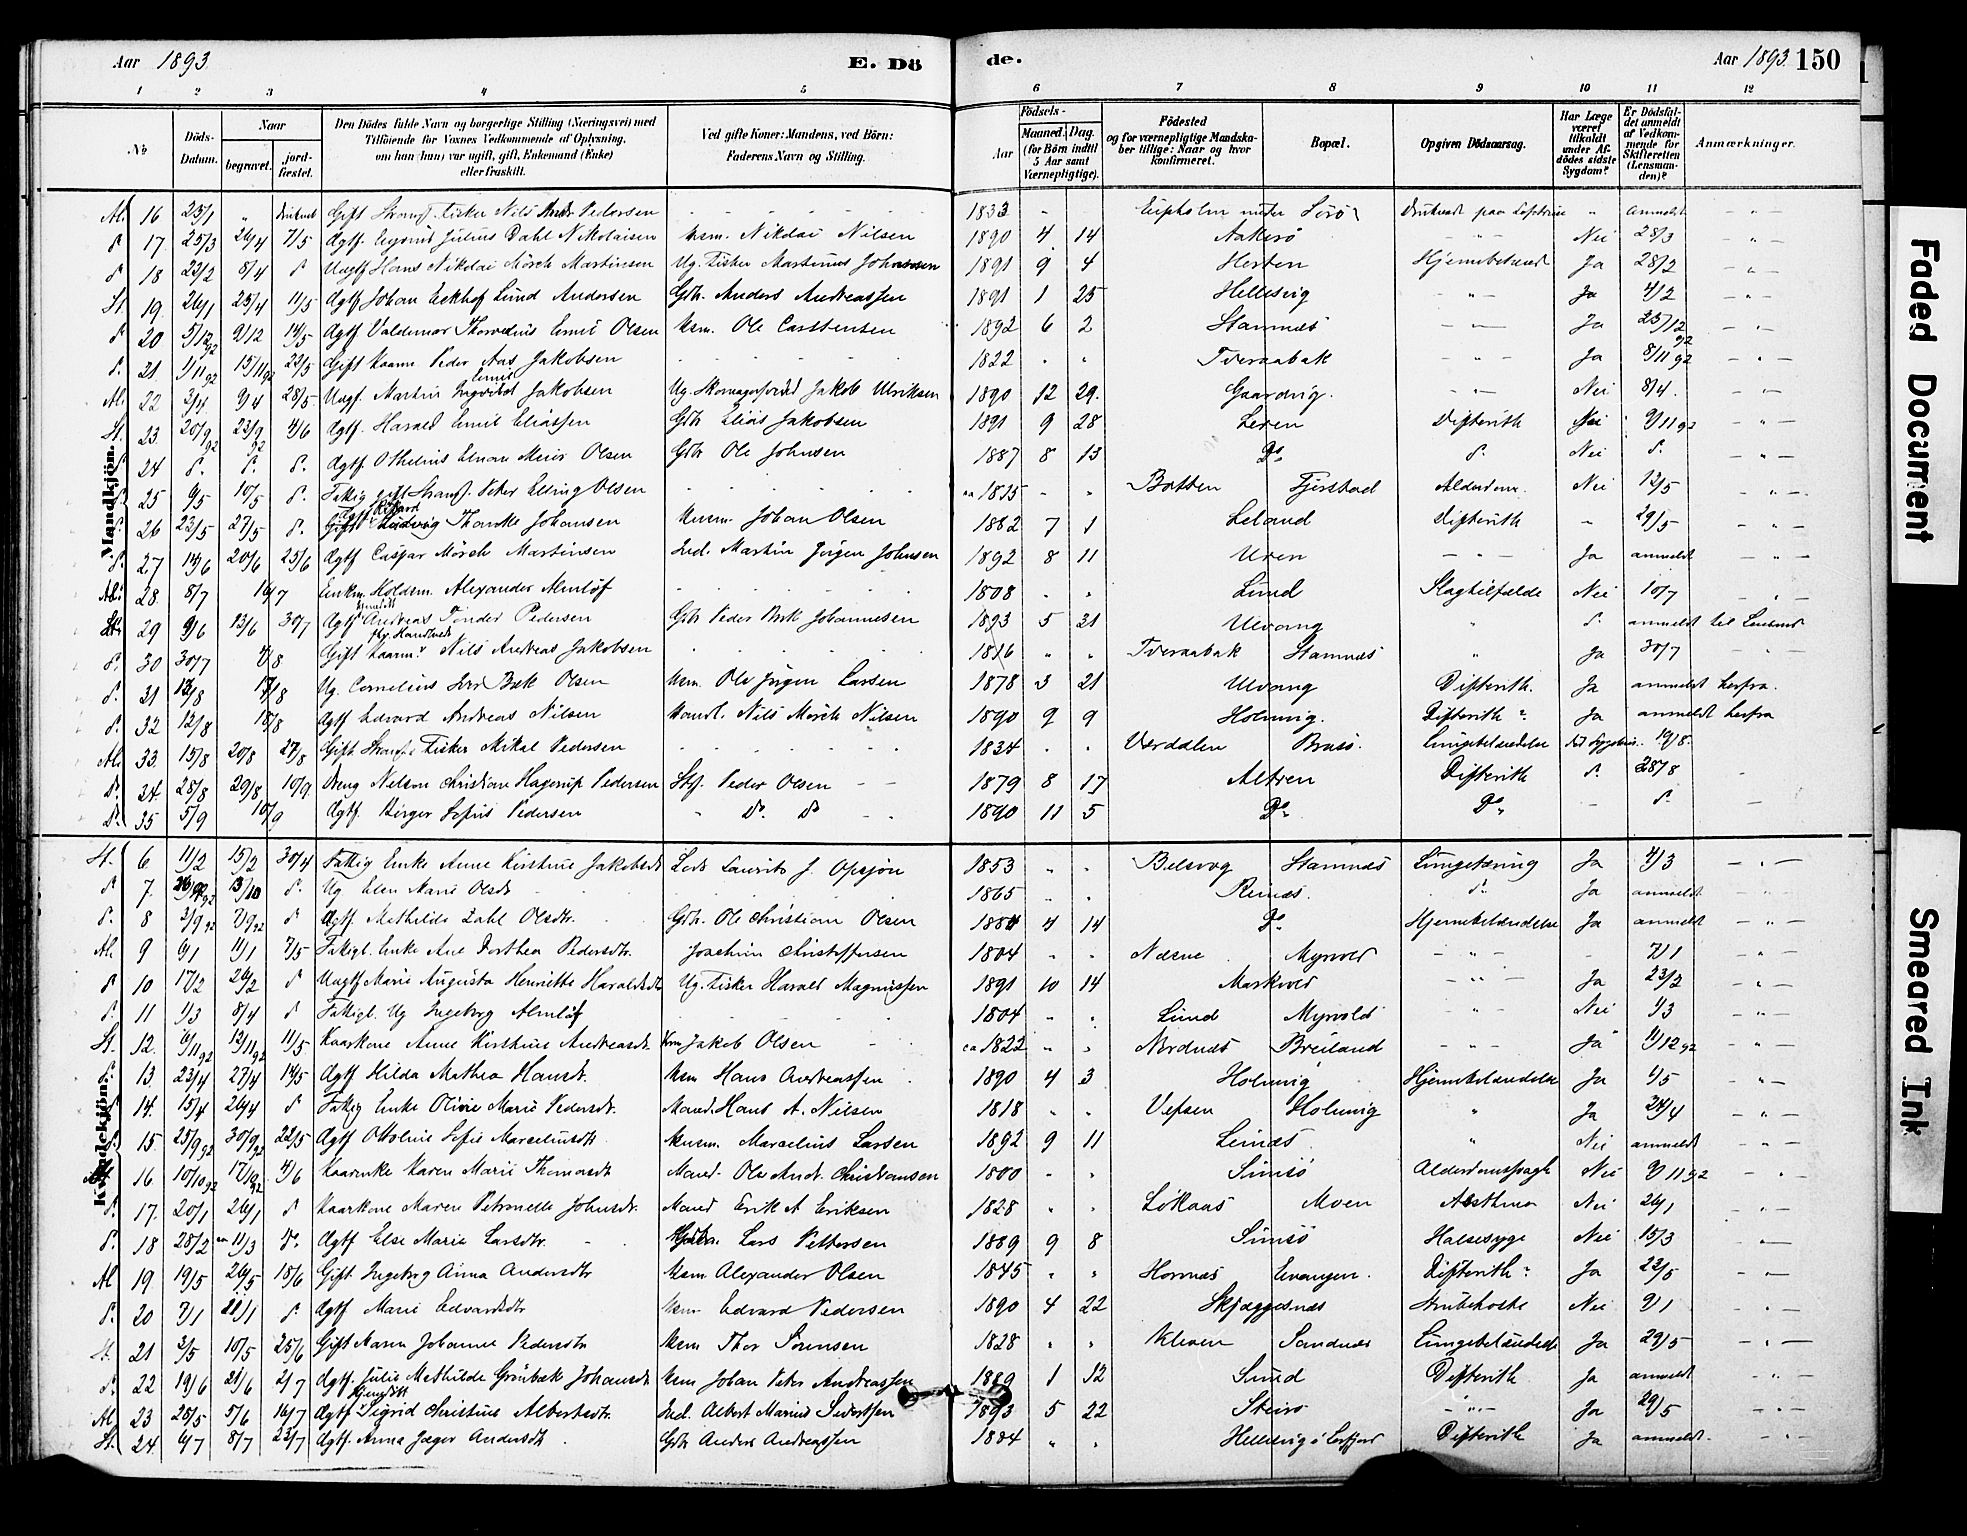 Aar 1893
E. Dö
de.
Aar 1893. 150
1 2 3 4 5 6 7 8 9 10 11 12
No
Döds-Datum.
Naar
begravet.
jordfæstet.
Den Dödes fulde Navn og borgerlige Stilling (Næringsvei) med Tilföiende for Voxnes Vedkommende af Oplysning, om han (hun) var ugift, gift, Enkemand (Enke) eller fraskilt.
Ved gifte Koner: Mandens, ved Börn: Faderens Navn og Stilling.
Födsels-
Aar
Maaned. Dag.
(for Börn indtil 5 Aar samt Værnepligtige).
Födested
og for værnepligtige Mandskaber tillige: Naar og hvor konfirmeret.
Bopæl.
Opgiven Dödsaarsag.
Har Læge været tilkaldt under Afdödes sidste Sygdom?
Er Dödsfaldet anmeldt af Vedkommende for Skifteretten (Lensmanden)?
Anmærkninger.
Mandkjön.
16 25/1 " druknet Gift Strands. Fisker Nils Andr Pedersen 1833 Druknet paa Lofothine " anmeldt
17. 25/3 26/4 7/5 Ægtf. Julius Dahl Nikolaisen Husm. Nikolai Nilsen 1890 4 14 Aakerö Nei 28/3
18 22/2 8/4 Uægtf Hans Nikolai Mörch Martinsen Ug. Fisker Martinus Johansen 1891 9 4 Herten Hjernebetænd Ja 28/2
19. 26/1 25/4 11/5 Ægtf Johan Eckhof Lund Andersen Gbr. Anders Andreassen 1891 1 25 Hellesvig Ja 4/2
20 5/12 92 9/12 14/5 Ægtf Valdemar Thorvelius Emil Olsen Husm. Ole Carstensen 1892 6 2 Stamnæs Ja 25/12 92
21. 1/11 92 15/11 92 22/5 Gift Kaarm Peder Aas Jakobsen 1822 Tveraabak Ja 8/11 92
22 3/4 9/4 28/5 Uægf. Martin Emil Jakobsen Ug. Jakob Ulriksen 1890 12 29. Nei 8/4.
23. 20/9 92 23/9 92 4/6 Ægtf. Harald Emil Eliassen Gbr Elias Jakobsen 1891 9 28 Leren Difterith Nei 9/11 92
24 Ægtf Othelius Meier Olsen Gbr Ole Johnsen 1887 8 13 Do Nei
25 9/5 10/5 Fattig gift Strands. Peter Elling Olsen ca 1815 Botten Fjerstad Alderdom. Nei 12/5
26 23/5 27/5 Rikard Thomke Johansen Husm. Johan Olsen 1882 7 1 Leland Difterith 29/5
27 14/6 20/6 25/6 Ægtf Caspar Mörch Martinsen Ind. Martin Jörgen Johnsen 1892 8 11 Uren Ja anmeldt
28. 8/7 16/7 Enkm. Holdem. Alexander Almlöf 1808 Lund Slagtilfælde Nei 10/7
29 9/6 13/6 30/7 Ægtf Andreas Tönder Pedersen Gbr Peder Bek Johannesen 1893 5 21 Ulvang anmeldt til Lensmd
30 30/7 Gift Kaarm. Nils Andreas Jakobsen 1816 Tveraabak Stamnæs Ja 30/7
31 12/8 17/8 Ug. Cornelius Bek Olsen Husm. Ole Jörgen Larsen 1878 3 21 Ulvang Difterith. Ja anmeldt herfra.
32 12/8 18/8 Ægtf Edvard Andreas Nilsen Handl. Nils Mörch Nilsen 1890 9 9 Holmvig. Difterith Ja anmeldt herfra
33. 15/8 20/8 27/8 Gift Strands Fisker Mikal Pedersen 1834 Værdalen Brasö. Lungebetændelse 19/8.
34. 28/8 29/8 10/9 Dreng Nelson Christian Hagerup Pedersen Stf. Peder Olsen 1879 8 17 Altren Difterith 28/8
35 5/9 10/9 Ægtf. Birger Sofus Pedersen Do Do 1890 11 5 Do Do
Kvindekjön.
6 11/2 15/2 30/4 Fattig Enke Anne Kirstine Jakobsdt Leds Laurits J. Opsjön 1853 Belsvog Stamnæs Lungetæring Ja 4/3
7. 13/10 Ug Elen Marie Olsdt 1865 Reinæs. Ja anmeldt
8 2/9 92 7/9 92 Ægtf. Mathilde Zahl Olsdtr. Gbr. Ole Christian Olsen 1884 4 14 Do Hjernebetændelse Ja anmeldt
9 6/1 11/1 7/5 Fattigl. Enke Ane Dorthea Pedersdtr Joachim Christoffersen 1804 Næsne Myrvold 7/1
10 17/2 26/2 Uægtf Marie Augusta Henriette Haraldsdtr Ug. Fisker Harald Magnussen 1891 10 14 Markvold Ja 23/2
11 1/3 8/4 Fattigl. Ug Ingeborg Almlöf 1804 Lund Myrvold Nei 1/3
12. 6/11 92 12/11 92 11/5 Kaarkone Anne Kirstine Andreasdtr Krm Jakob Olsen ca 1822 Nordnæs Breiland Ja 11/12 92
13. 23/4 27/4 14/5 Ægtf Hilda Mathea Hansdtr. Husm Hans Andreassen 1890 4 3 Holmvig Hjernebetændelse Ja 1/5
14. 15/4 26/4 Fattig Enke Olivie Marie Pedersdtr. Mand. Hans A. Nilsen 1818 Vefsen Holmvig Ja 24/4
15. 25/9 92 30/9 92 22/5 Ægtf Ottoline Sofie Marseliusdt Husm. Marcelius Larsen 1892 9 11 Leinæs Nei anmeldt
16. 10/10 92 17/10 92 4/6 Kaarenke Karen Marie Thomasdt Mand. Ole Andr. Christiansen 1800 Simsö Alderdomssvagh Nei 9/11 92
17. 20/1 26/1 Kaarkone Maren Petronelle Johnsdtr. Mand Erik A Eriksen 1828 Lökaas Moen Asthma Nei 26/1
18 28/2 11/3 Ægtf Else Marie Larsdtr. Lars Pettersen 1889 9 8 Simsö Halsesyge Nei 15/3
19 19/5 26/5 18/6 Gift. Ingeborg Anna Andersdtr Husm Alexander Olsen 1845 Hornæs Levangen. Difterith Ja 22/5
20. 7/1 22/1 Ægtf Marie Edvardsdtr Husm Edvard Pedersen 1890 4 22 Skjæggesnæs Strubehoste Nei 9/1
21 2/5 10/5 25/6 Gift Maren Johanne Pedersdtr Husm Thor Sörensen 1828 Kleven Sandnæs Lungebetændelse Ja 29/5
22 19/6 21/6 2/7 Ægtf. Julie Mathilde Grönbæk Johansdtr Husm Johan Peter Andreassen 1889 1 12 Sund Difterith Ja anmeldt
23 28/5 5/6 16/7 Ægtf Sigrid Christine Albertsdtr. Ind. Albert Marius Sivertsen 1893 5 22 Steirö Ja 29/5
24. 6/7 8/7 23/7 Ægtf. Anna Jæger Andersdt Gbr Anders Andreassen 1884 Hellesvig i Leirfjord Difterith Ja anmeldt
Faded Document
Smeared Ink